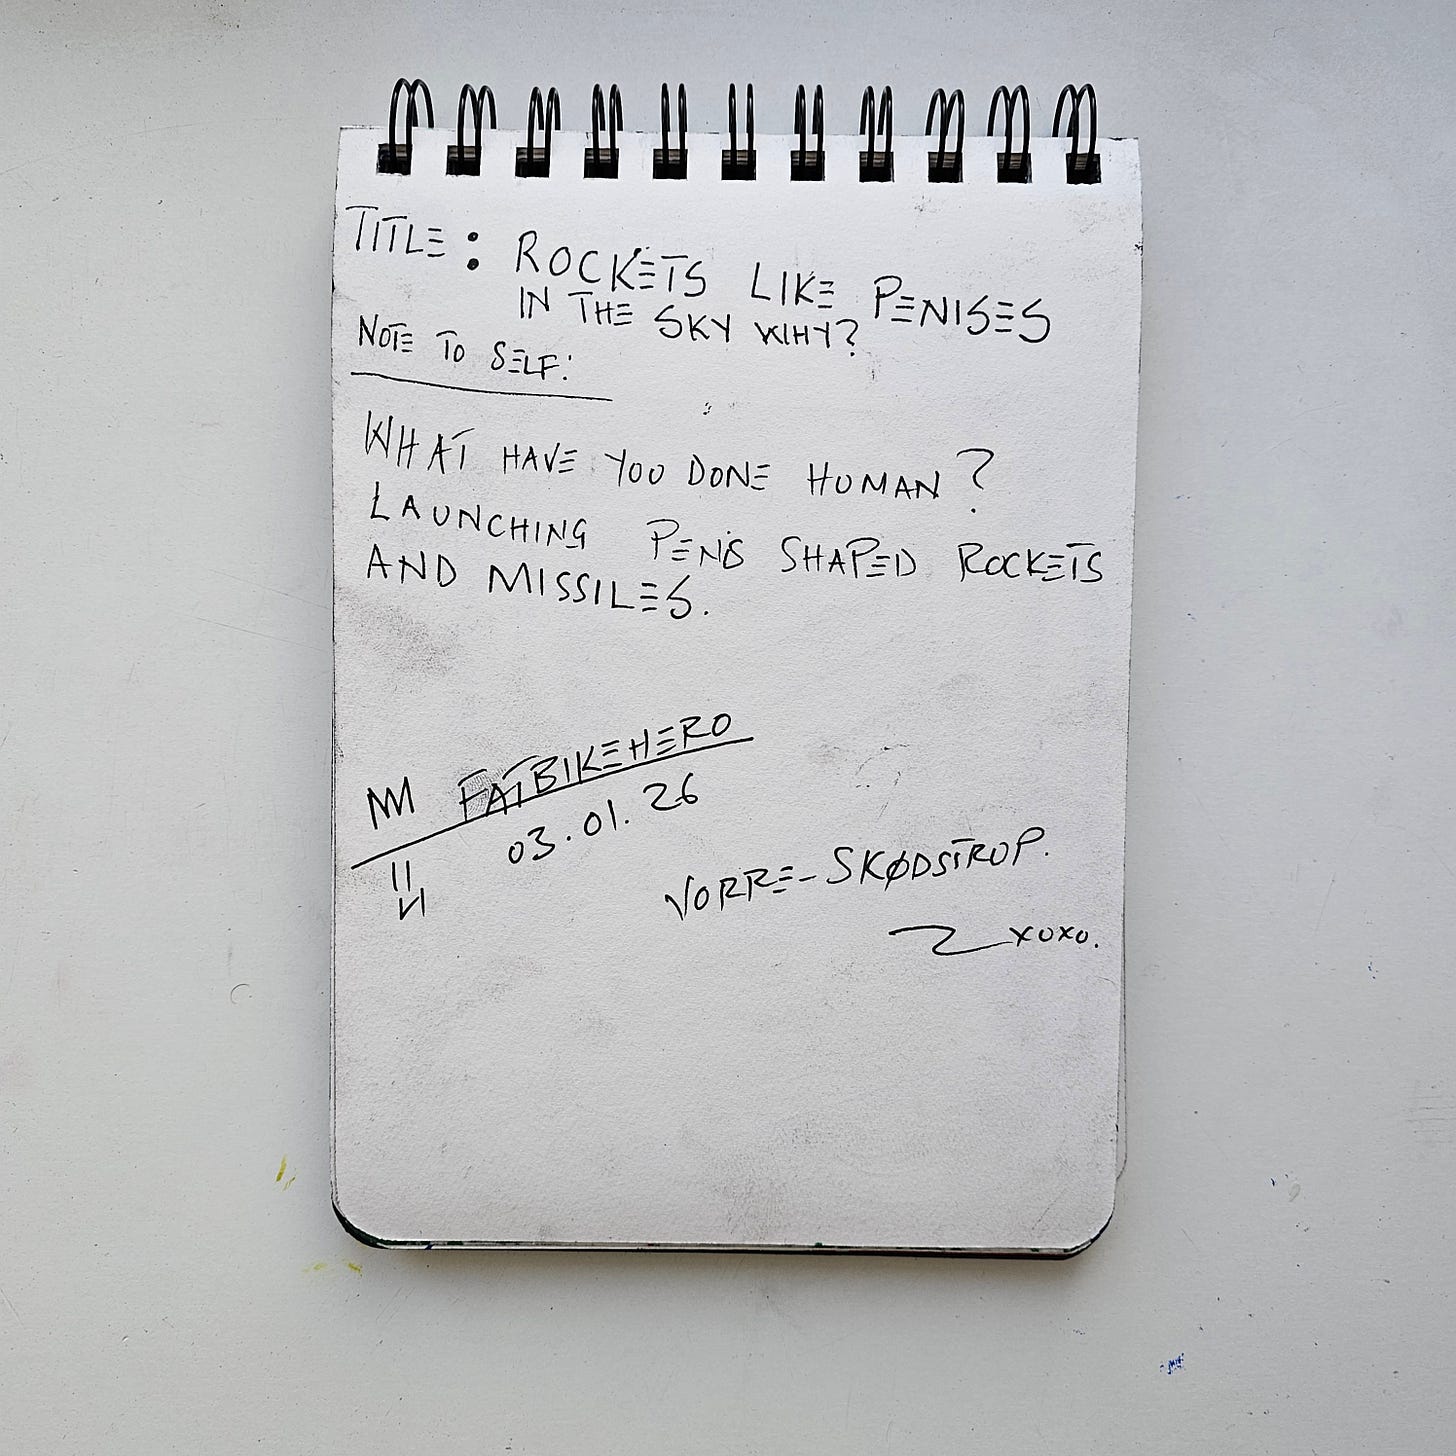 TITLE: ROCKETS LIKE PENISES
IN THE SKY WHY?
NOTE TO SELF:
WHAT HAVE YOU DONE HUMAN?
LAUNCHING PENIS SHAPED ROCKETS
AND MISSILES.
FATBIKEHERO
03.01.26
VORRE-SKØDSTRUP.
xoxo.